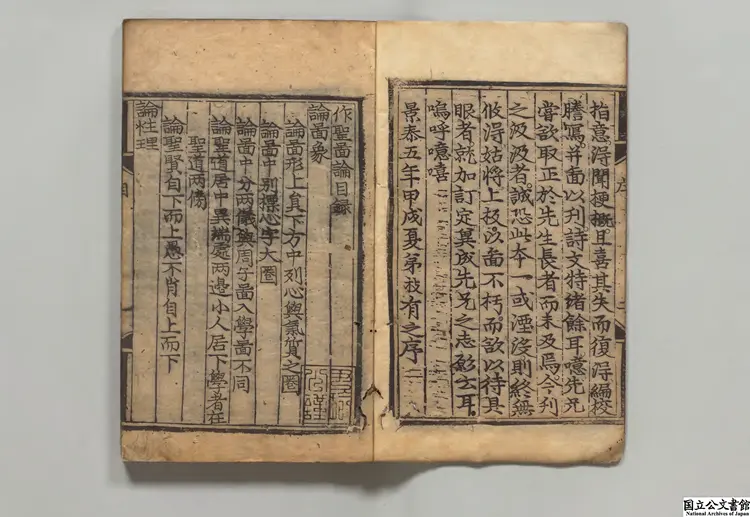 指意得聞梗槪且喜其失而復得編校
謄寫并面以刊詩文特緖餘耳噫先兄
嘗欲取正於先生長者而未及焉今刊
之汲汲者誠恐此本一或湮沒則終無
攸得姑將上板以啚不朽而欲以待具
眼者就加訂定異成先兄之志云耳
嗚呼噫嘻
景泰五年甲戌夏弟枝有之序
序
作聖啚論目錄
論啚象
論啚形上負下方中列心與氣質之圈
論啚中別標心字大圈
論啚中分兩儀與周子啚入學啚不同
論聖道居中異端處兩邊小人居下學者在
聖道兩傍
論聖賢自下而上愚不肖自上而下
論性理
目
国立公文書館
National Archives of Japan